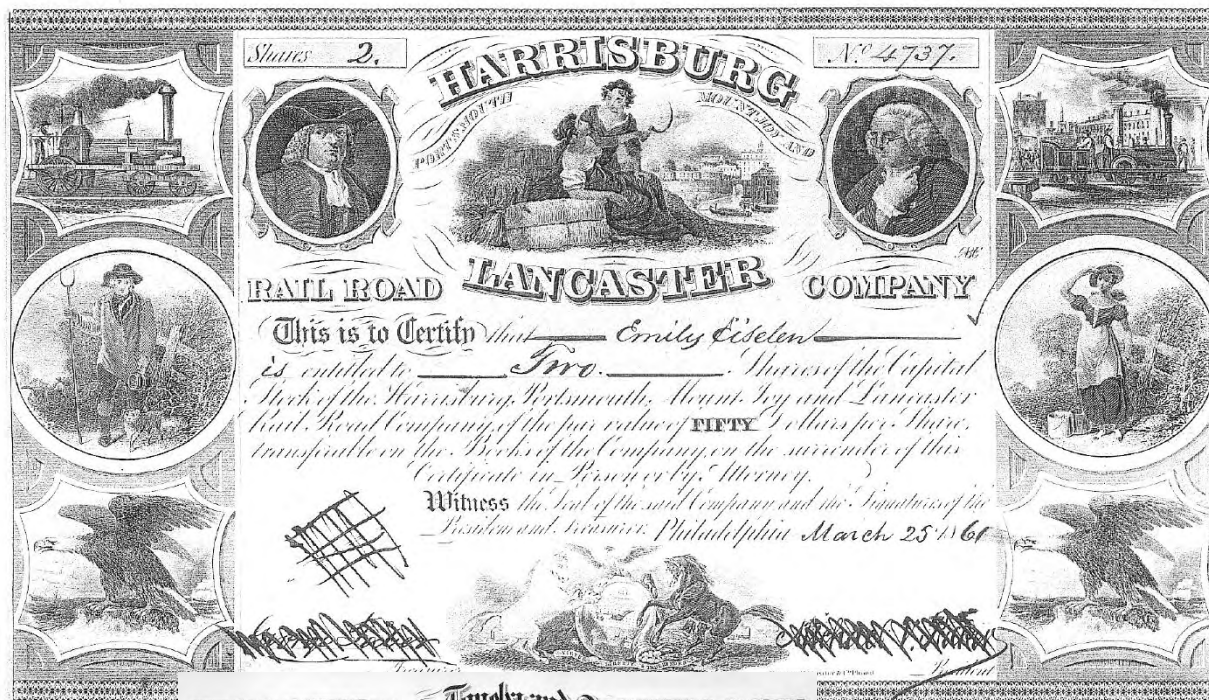 Shares 2.
No. 4737.
HARRISBURG
PORTSMOUTH MOUNT-JOY AND
LANCASTER
RAIL ROAD COMPANY
This is to Certify that Emily Eiselen
is entitled to Two. Shares of the Capital
Stock of the Harrisburg, Portsmouth, Mount Joy and Lancaster
Rail Road Company, of the par value of FIFTY Dollars per Share,
transferable on the Books of the Company, on the surrender of this
Certificate in Person or by Attorney.
Witness the Seal of the said Company and the Signatures of the
President and Treasurer. Philadelphia March 25 1861
Treasurer
President